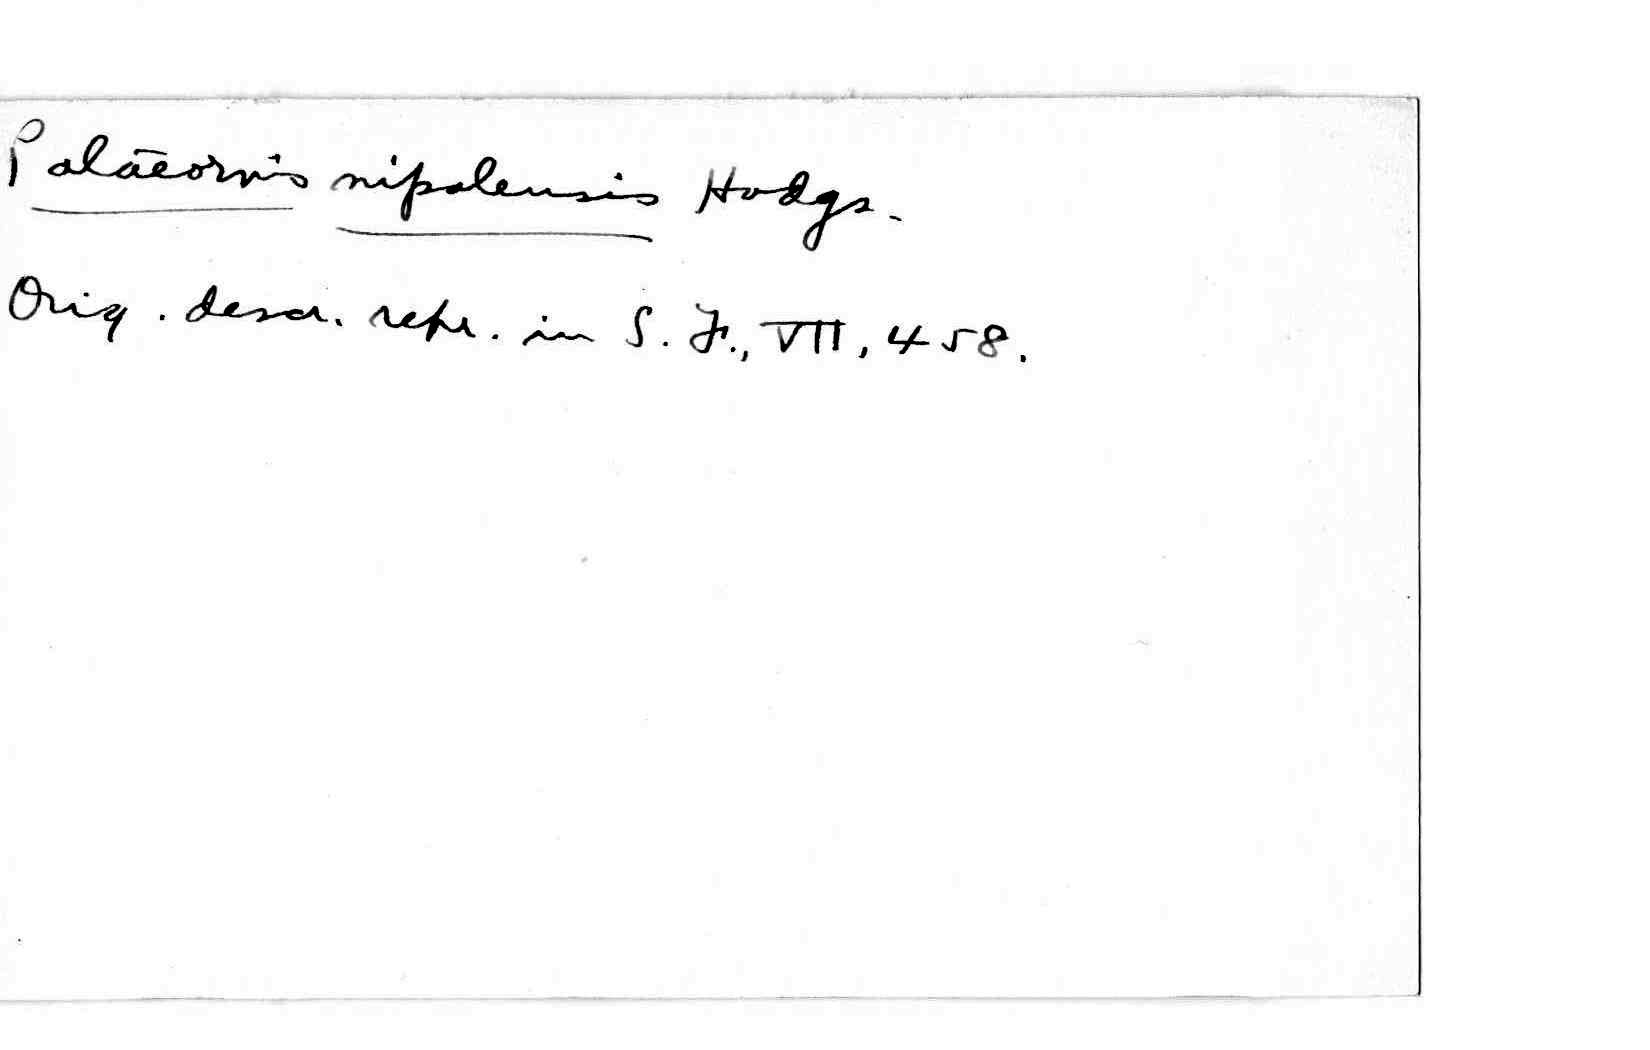 Palaeornis nipalensis Hodgs.
Orig. descr. repr. in S. F., VII, 458.